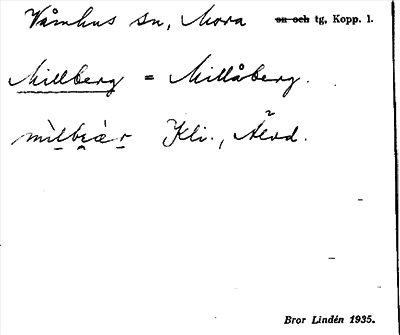 Våmhus sn, Mora ~~sn och~~ tg, Kopp. l.
Millberg = Millåberg.
mìlbær Kli., Älvd.
Bror Lindén 1935.